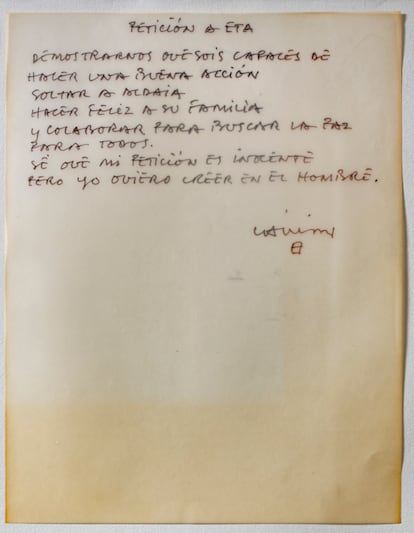 PETICIÓN A ETA
DEMOSTRARNOS QUE SOIS CAPACES DE
HACER UNA BUENA ACCIÓN
SOLTAR A ALDAIA
HACER FELIZ A SU FAMILIA
Y COLABORAR PARA BUSCAR LA PAZ
PARA TODOS.
SÉ QUE MI PETICIÓN ES INOCENTE
PERO YO QUIERO CREER EN EL HOMBRE.